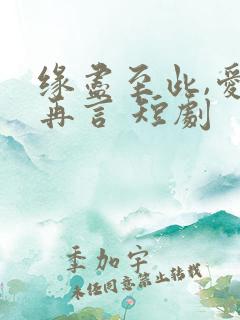 缘尽至此,爱
再言 短劇
季加宇
未经同意禁止转载